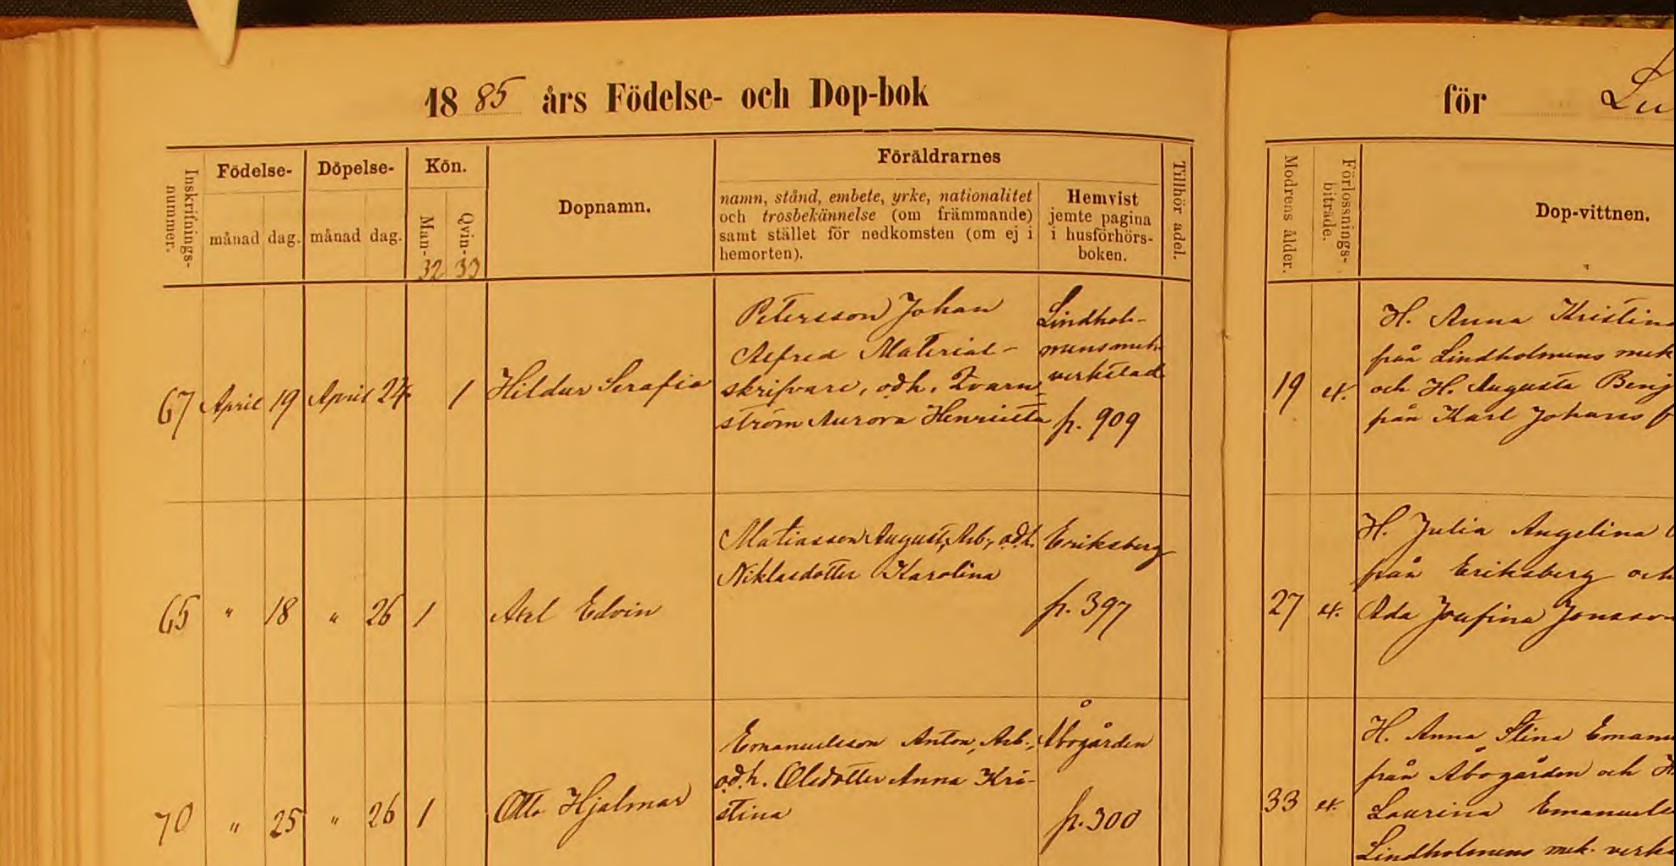 1885 års Födelse- och Dop-bok
för Lu
Inskrifnings-
nummer.
Födelse-
månad dag.
Döpelse-
månad dag.
Kön.
Man-
32
Qvin-
33
Dopnamn.
Föräldrarnes
namn, stånd, embete, yrke, nationalitet
och trosbekännelse (om främmande)
samt stället för nedkomsten (om ej i
hemorten).
Hemvist
jemte pagina
i husförhörs-
boken.
Tillhör adel.
Modrens ålder.
Förlossnings-
biträde.
Dop-vittnen.
67 April 19 April 24 1 Hildur Serafia
Petersson Johan
Alfred Material-
skrifvare, o.d.h. Qvarn-
ström Aurora Henrietta
Lindhol-
mens mek.
verkstad
p. 909
19 ex.
H. Anna Kristin
från Lindholmens mek
och H. Augusta Benj
från Karl Johans f
65 " 18 " 26 1 Axel Edvin
Matiasson August, Arb., o.d.h.
Niklasdotter Karolina
Eriksberg
p. 397
27 ex.
H. Julia Angelina
från Eriksberg och
Ada Josefina Jonsson
70 " 25 " 26 1 Otto Hjalmar
Emanuelsson Anton, Arb.,
o.d.h. Olsdotter Anna Kri-
stina
Åbogården
p. 300
33 ex.
H. Anna Stina Emanu
från Åbogården och H
Laurina Emanuels
Lindholmens mek. verks